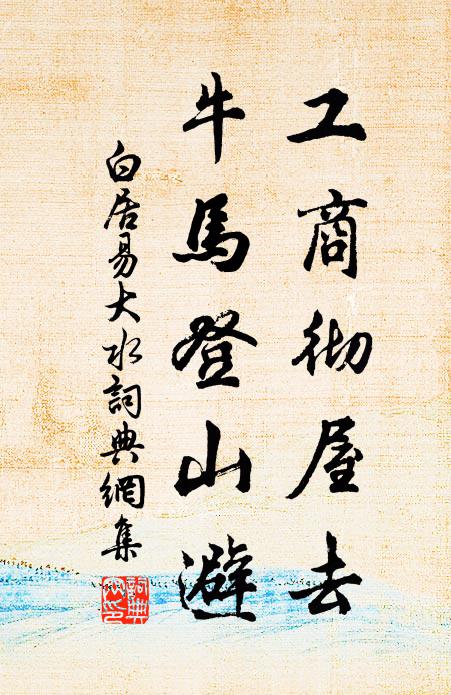 工商彻屋去
牛馬登山避
白居易大水詞典網集